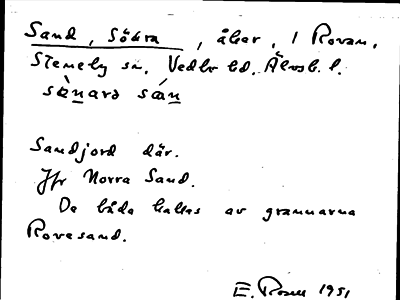 Sand, Södra, åker, i Rovan,
Steneby sn, Vedbo hd. Älvsb. l.
sønarə sán
Sandjord där.
Jfr Norra Sand.
De båda kallas av grannarna
Rovesand.
E. Rosell 1951